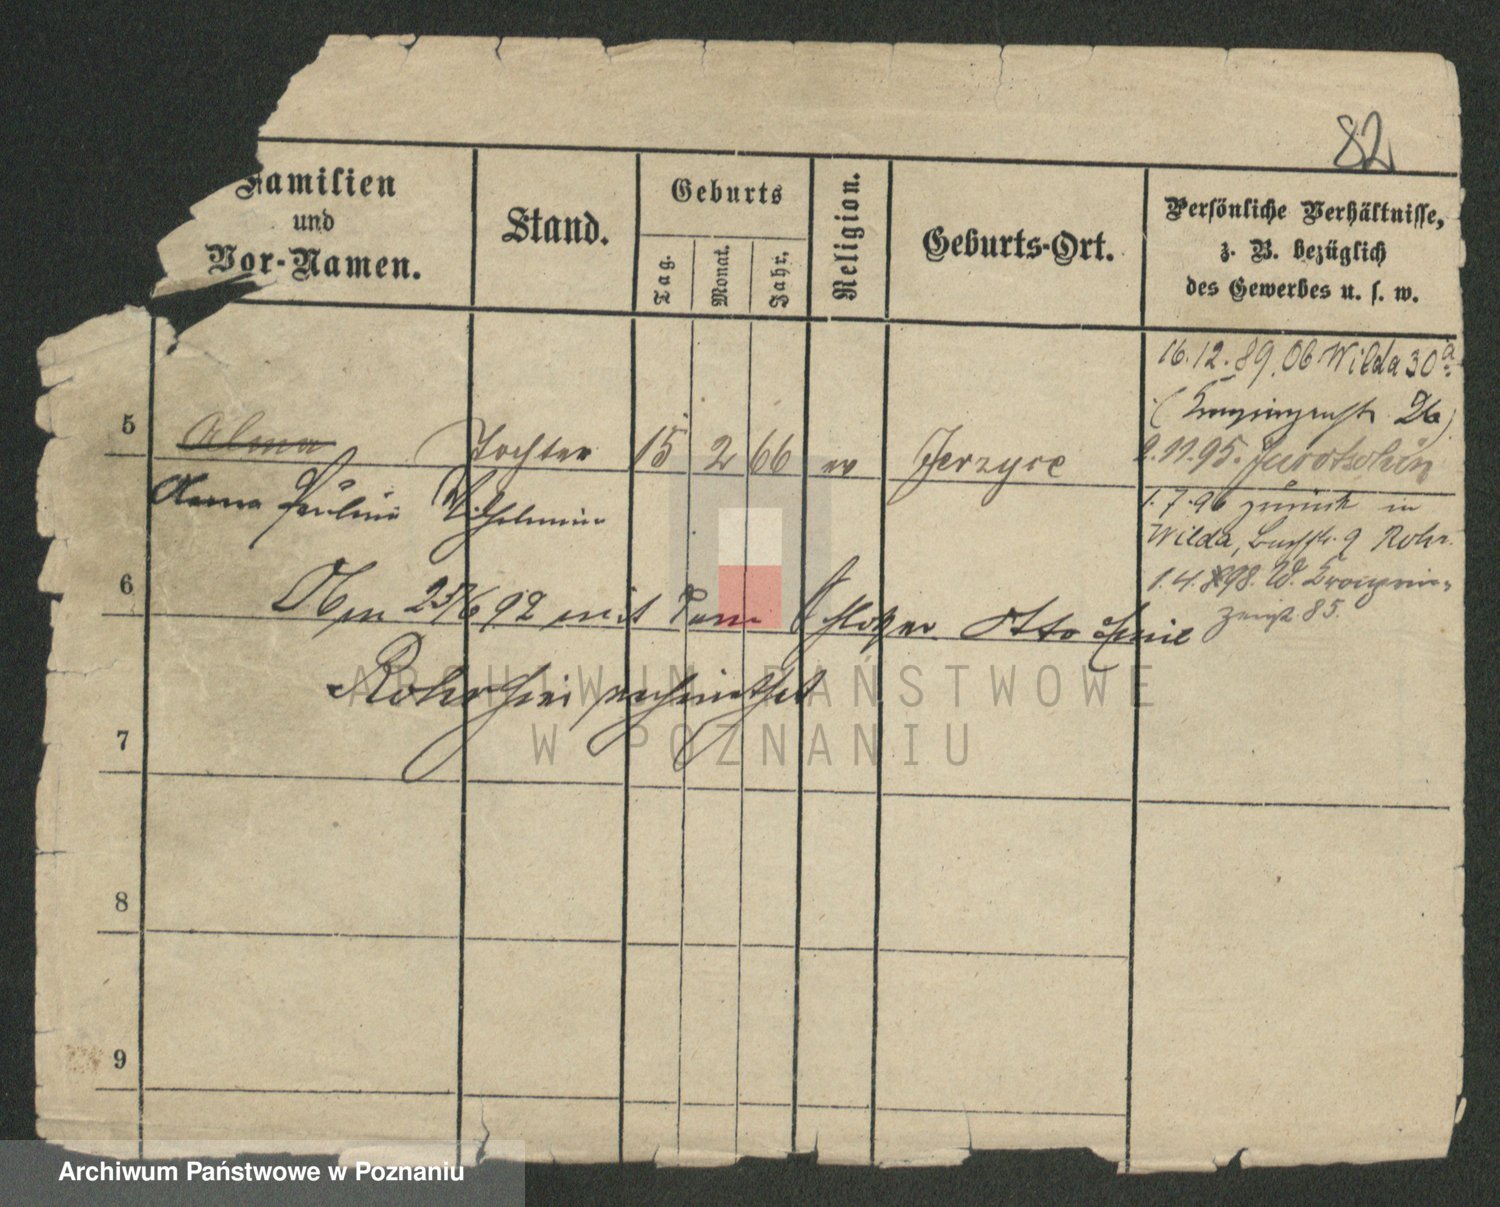 82
Familien
und
Vor-Namen.
Stand.
Geburts
Tag.
Monat.
Jahr.
Religion.
Geburts-Ort.
Persönliche Verhältnisse,
z. B. bezüglich
des Gewerbes u. s. w.
16.12.89. Ob Wilda 30a
(Kronprinzenstr. 26)
5 Alma Tochter 15 2 66 ev Jerzyce
2.11.95. Jarotschin
Anna Pauline Wilhelmine
1.7.96 zurück in
Wilda, 9 Rohr.
6
1.4.98. W. Kronprin-
zenstr. 85.
Am 25/6 92 mit dem Schlosser Otto Emil
Rohr hier verheirathet
7
8
9
ARCHIWUM PAŃSTWOWE
W POZNANIU
Archiwum Państwowe w Poznaniu